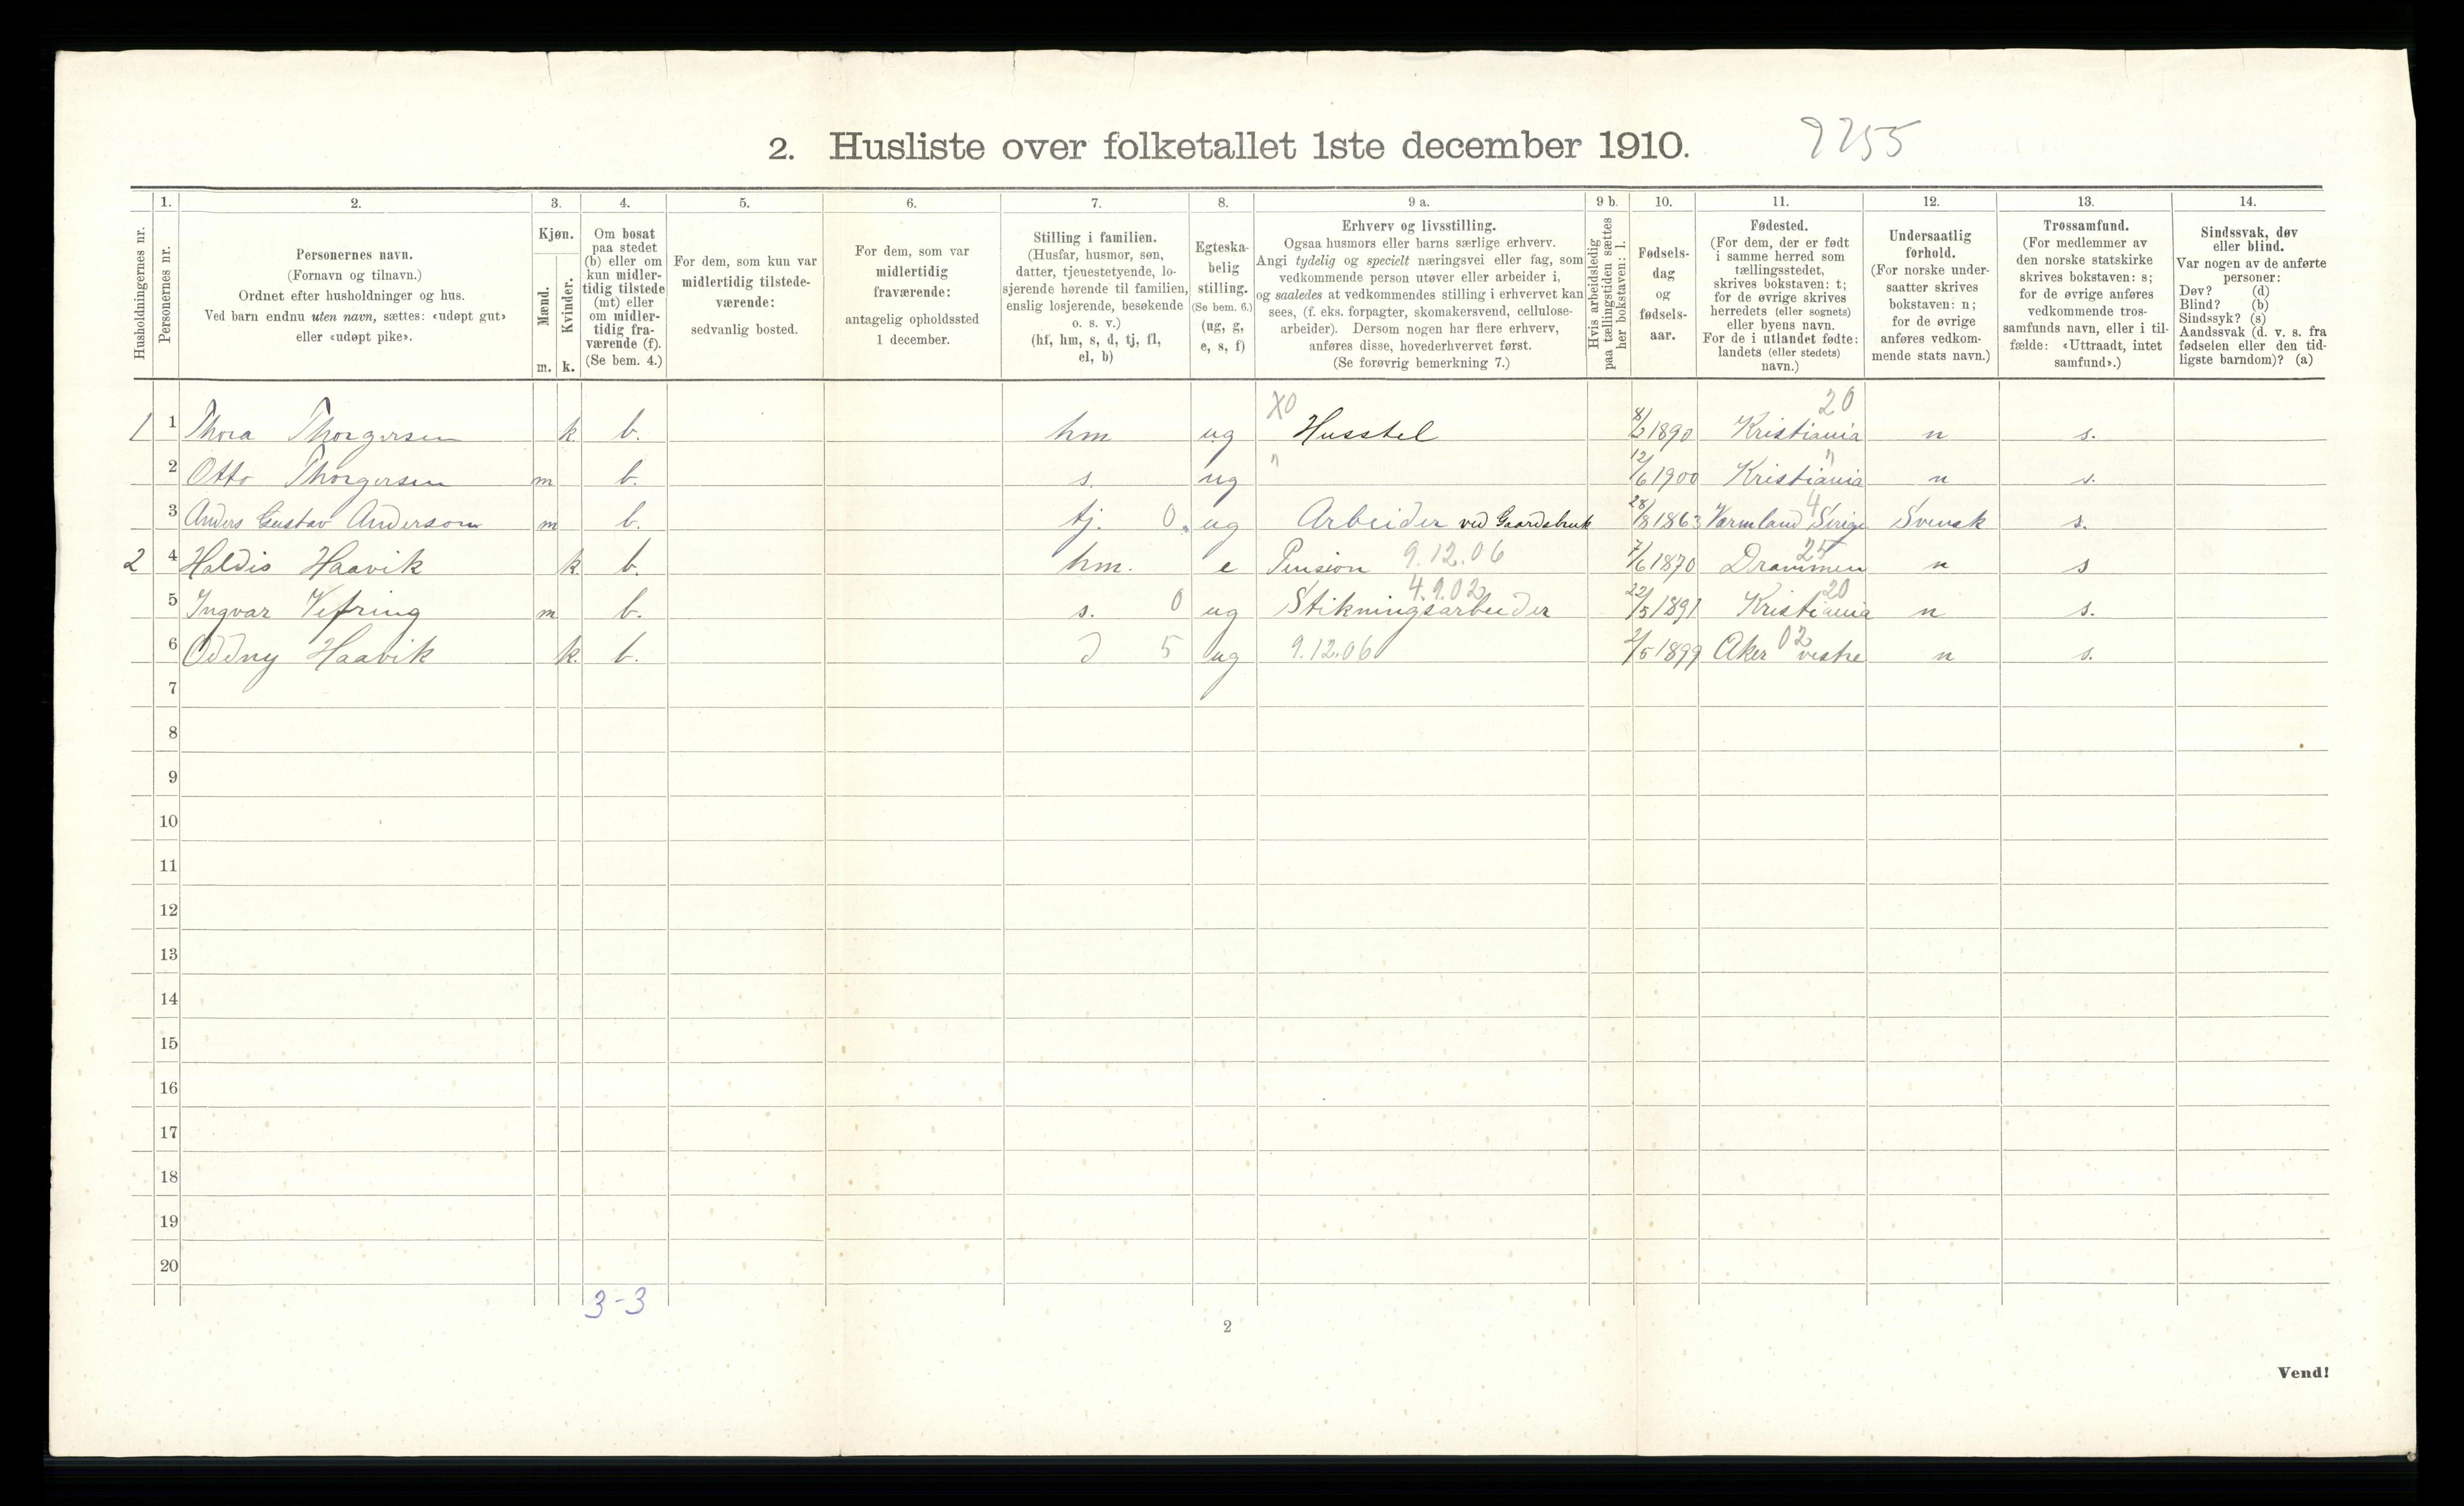 2. Husliste over folketallet 1ste december 1910. 9255
Husholdningernes nr.
1. Personernes nr.
2. Personernes navn. (Fornavn og tilnavn.) Ordnet efter husholdninger og hus. Ved barn endnu uten navn, sættes: «udøpt gut» eller «udøpt pike».
3. Kjøn. Mænd. m. Kvinder. k.
4. Om bosat paa stedet (b) eller om kun midlertidig tilstede (mt) eller om midlertidig fraværende (f). (Se bem. 4.)
5. For dem, som kun var midlertidig tilstedeværende: sedvanlig bosted.
6. For dem, som var midlertidig fraværende: antagelig opholdssted 1 december.
7. Stilling i familien. (Husfar, husmor, søn, datter, tjenestetyende, losjerende hørende til familien, enslig losjerende, besøkende o. s. v.) (hf, hm, s, d, tj, fl, el, b)
8. Egteskabelig stilling. (Se bem. 6.) (ug, g, e, s, f)
9 a. Erhverv og livsstilling. Ogsaa husmors eller barns særlige erhverv. Angi tydelig og specielt næringsvei eller fag, som vedkommende person utøver eller arbeider i, og saaledes at vedkommendes stilling i erhvervet kan sees, (f. eks. forpagter, skomakersvend, cellulosearbeider). Dersom nogen har flere erhverv, anføres disse, hovederhvervet først. (Se forøvrig bemerkning 7.)
9 b. Hvis arbeidsledig paa tællingstiden sættes her bokstaven: l.
10. Fødselsdag og fødselsaar.
11. Fødested. (For dem, der er født i samme herred som tællingsstedet, skrives bokstaven: t; for de øvrige skrives herredets (eller sognets) eller byens navn. For de i utlandet fødte: landets (eller stedets) navn.)
12. Undersaatlig forhold. (For norske undersaatter skrives bokstaven: n; for de øvrige anføres vedkommende stats navn.)
13. Trossamfund. (For medlemmer av den norske statskirke skrives bokstaven: s; for de øvrige anføres vedkommende trossamfunds navn, eller i tilfælde: «Uttraadt, intet samfund».)
14. Sindssvak, døv eller blind. Var nogen av de anførte personer: Døv? (d) Blind? (b) Sindssyk? (s) Aandssvak (d. v. s. fra fødselen eller den tidligste barndom)? (a)
X0 20
1 1 Thora Thorgersen k. b. hm ug Husstel 8/2 1890 Kristiania n s.
2 Otto Thorgersen m b. s. ug " 12/6 1900 Kristiania " n s.
3 Anders Gustav Anderson m b. tj. 0. ug Arbeider ved Gaardsbruk 28/8 1863 Varmland Sverige 4 Svensk s.
2 4 Haldis Haavik k. b. hm. e Pension 9.12.06 7/6 1870 Drammen 25 n s
5 Ingvar Vefring m b. s. 0 ug Stikningsarbeider 4.9.02 22/5 1891 Kristiania 20 n s.
6 Oddny Haavik k. b. d 5 ug 9.12.06 2/5 1899 Aker 02 vestre n s.
7
8
9
10
11
12
13
14
15
16
17
18
19
20
3-3
2
Vend!